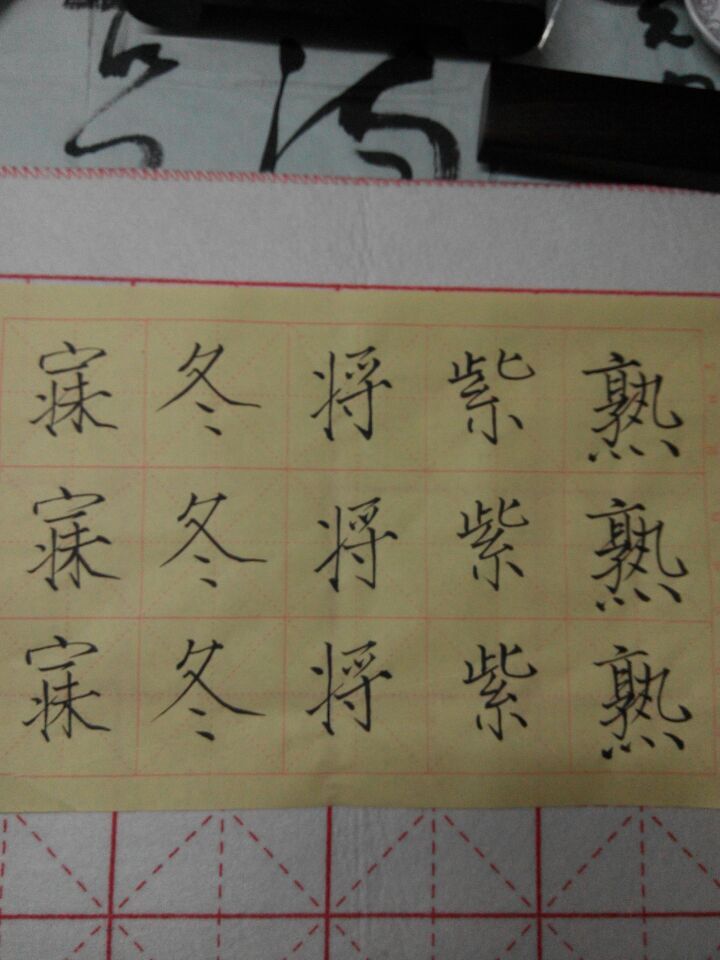 寐冬将紫熟
寐冬将紫熟
寐冬将紫熟